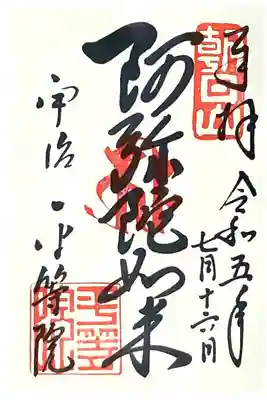 奉拝
令和五年
七月十六日
朝日山
阿弥陀如来
宇治 平等院
平等院